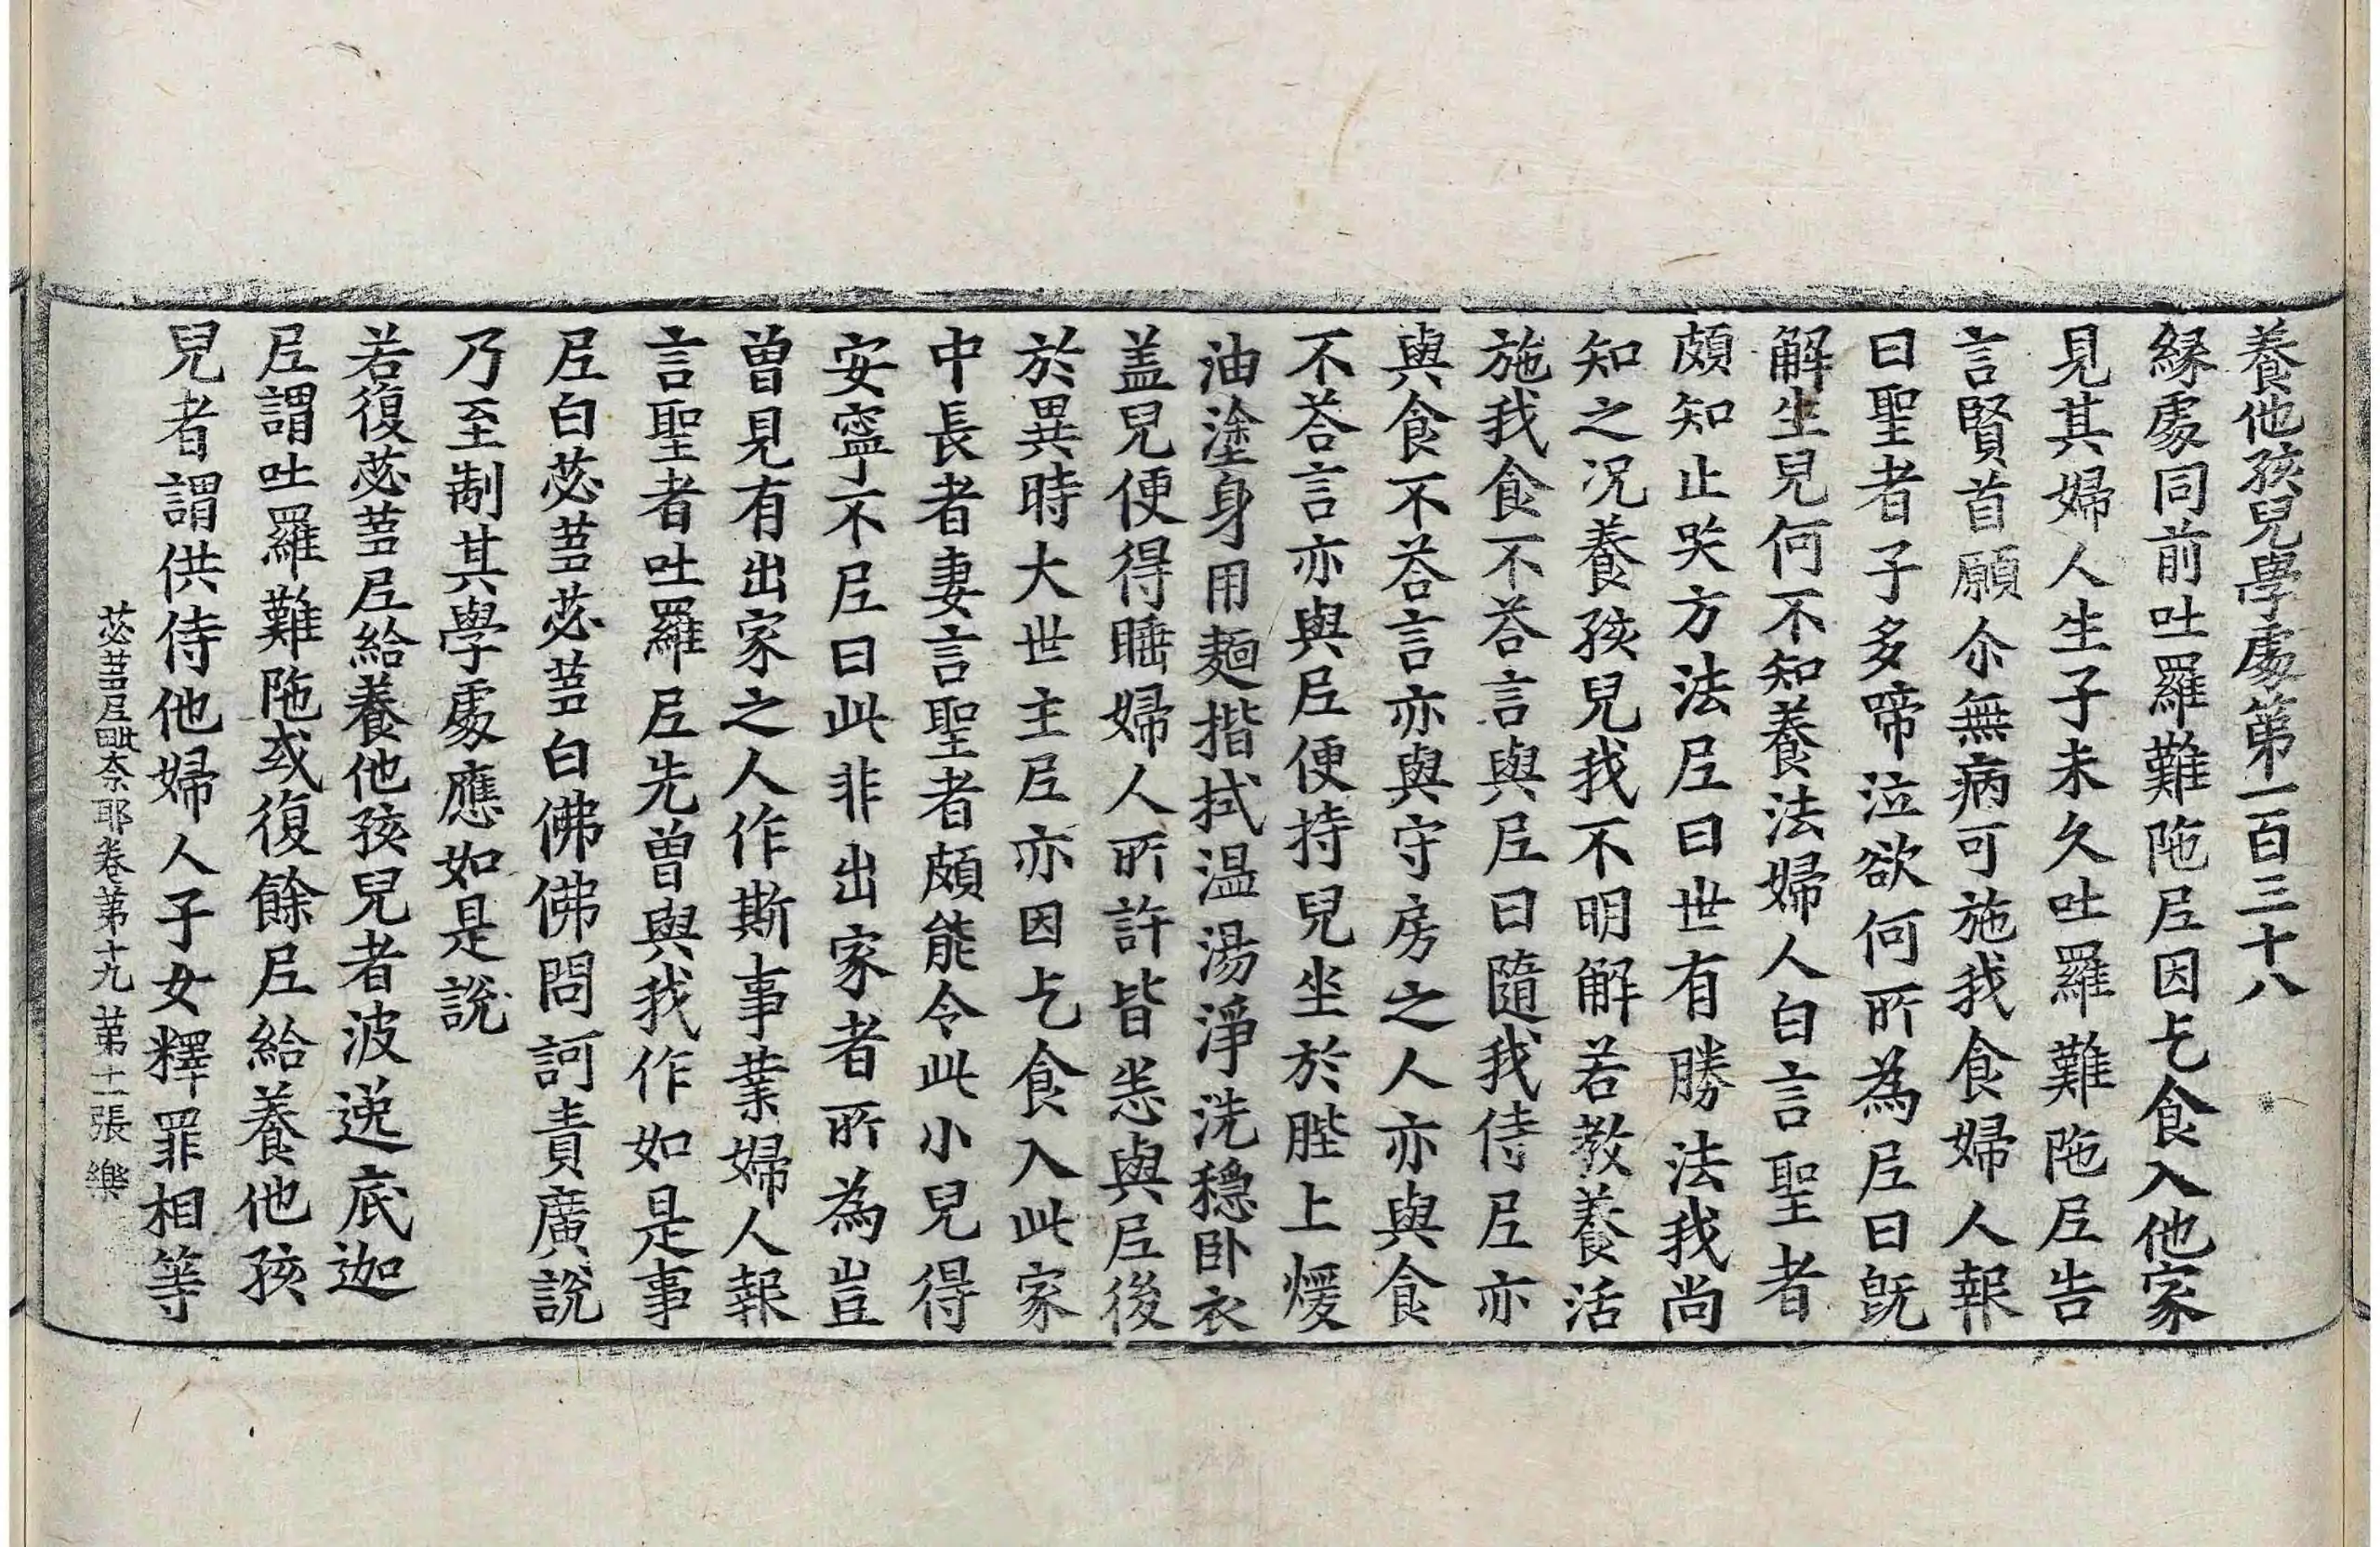 養他孩兒學處第一百三十八
縁處同前吐羅難陁尼因乞食入他家
見其婦人生子未久吐羅難陁尼告
言賢首願尒無病可施我食婦人報
曰聖者子多啼泣欲何所為尼曰旣
解生兒何不知養法婦人白言聖者
頗知止哭方法尼曰世有勝法我尚
知之况養孩兒我不明解若教養活
施我食不荅言與尼曰隨我侍尼亦
與食不荅言亦與守房之人亦與食
不荅言亦與尼便持兒坐於䏶上煖
油塗身用麺揩拭温湯淨洗穏卧衣
盖兒便得睡婦人所許皆悉與尼後
於異時大世主尼亦因乞食入此家
中長者妻言聖者頗能令此小兒得
安寧不尼曰此非出家者所為豈
曾見有出家之人作斯事業婦人報
言聖者吐羅尼先曾與我作如是事
尼白苾蒭苾蒭白佛佛問訶責廣說
乃至制其學處應如是說
若復苾蒭尼給養他孩兒者波逸底迦
尼謂吐羅難陁或復餘尼給養他孩
兒者謂供侍他婦人子女釋罪相等
苾蒭尼毗奈耶卷第十九 第十一張 樂